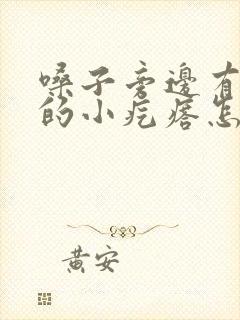 嗓子旁边有
的小疙瘩怎
黄安